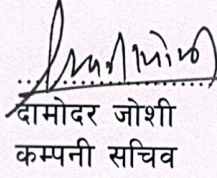 दामोदर जोशी
कम्पनी सचिव